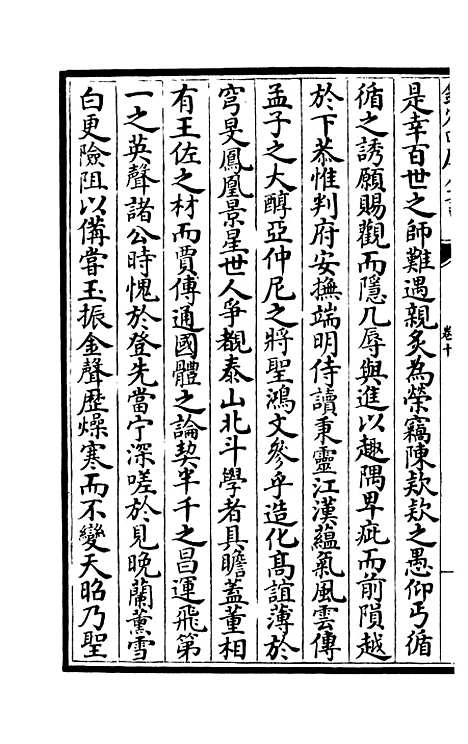 欽定四庫全書
卷十
是幸百世之師難遇親炙為榮竊陳欵欵之愚仰丐循
循之誘願賜觀而隱几辱與進以趣隅卑疵而前隕越
於下恭惟判府安撫端明侍讀秉靈江漢藴氣風雲傳
孟子之大醇亞仲尼之將聖鴻文參乎造化髙誼薄於
穹旻鳳凰景星世人爭覩泰山北斗學者具瞻蓋董相
有王佐之材而賈傅通國體之論契半千之昌運飛第
一之英聲諸公時愧於登先當宁深嗟於見晚蘭薰雪
白更險阻以偹嘗玉振金聲歴燥寒而不變天昭乃聖